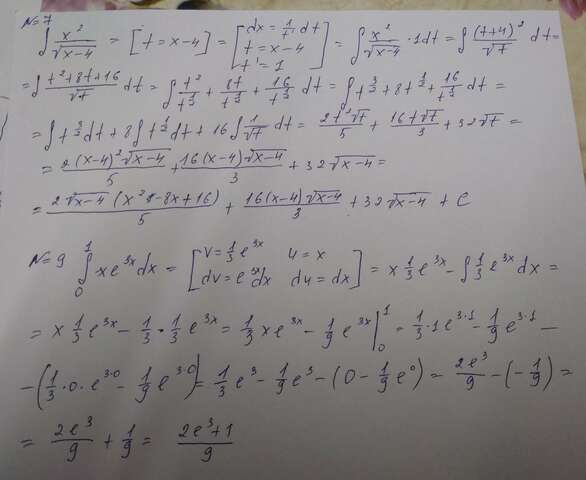 N=7
∫ x²/√(x-4) = [t = x-4] = [dx = 1/t' dt; t = x-4; t' = 1] = ∫ x²/√(x-4) · 1dt = ∫ (t+4)²/√t dt =
= ∫ (t²+8t+16)/√t dt = ∫ t²/t^(1/2) + 8t/t^(1/2) + 16/t^(1/2) dt = ∫ t^(3/2) + 8t^(1/2) + 16/t^(1/2) dt =
= ∫ t^(3/2) dt + 8∫ t^(1/2) dt + 16∫ 1/√t dt = 2t²√t/5 + 16t√t/3 + 32√t =
= 2(x-4)²√(x-4)/5 + 16(x-4)√(x-4)/3 + 32√(x-4) =
= 2√(x-4)(x²-8x+16)/5 + 16(x-4)√(x-4)/3 + 32√(x-4) + C
N=9 ∫₀¹ xe^(3x) dx = [v = 1/3 e^(3x) u = x; dv = e^(3x)dx du = dx] = x 1/3 e^(3x) - ∫ 1/3 e^(3x) dx =
= x 1/3 e^(3x) - 1/3 · 1/3 e^(3x) = 1/3 xe^(3x) - 1/9 e^(3x) |₀¹ = 1/3 · 1e^(3·1) - 1/9 e^(3·1) -
- (1/3 · 0 · e^(3·0) - 1/9 e^(3·0)) = 1/3 e³ - 1/9 e³ - (0 - 1/9 e⁰) = 2e³/9 - (-1/9) =
= 2e³/9 + 1/9 = (2e³+1)/9